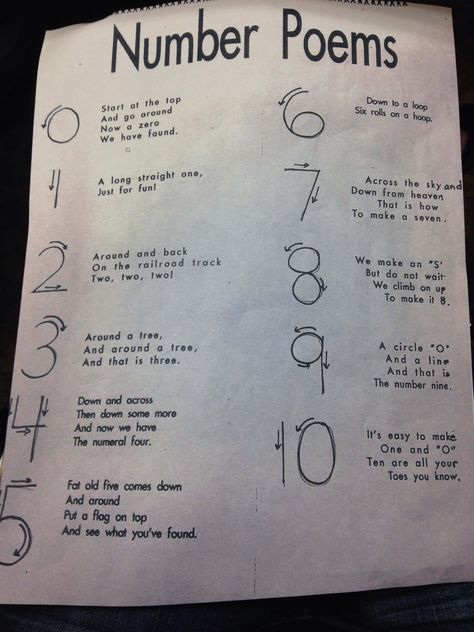 Number Poems
0
Start at the top
And go around
Now a zero
We have found.
1
A long straight one,
Just for fun!
2
Around and back
On the railroad track
Two, two, two!
3
Around a tree,
And around a tree,
And that is three.
4
Down and across
Then down some more
And now we have
The numeral four.
5
Fat old five comes down
And around
Put a flag on top
And see what you've found.
6
Down to a loop
Six rolls on a hoop.
7
Across the sky and
Down from heaven
That is how
To make a seven.
8
We make an "S'
But do not wait-
We climb on up
To make it 8.
9
A circle "O"
And a line
And that is
The number nine.
10
It's easy to make
One and "O"
Ten are all your
Toes you know.